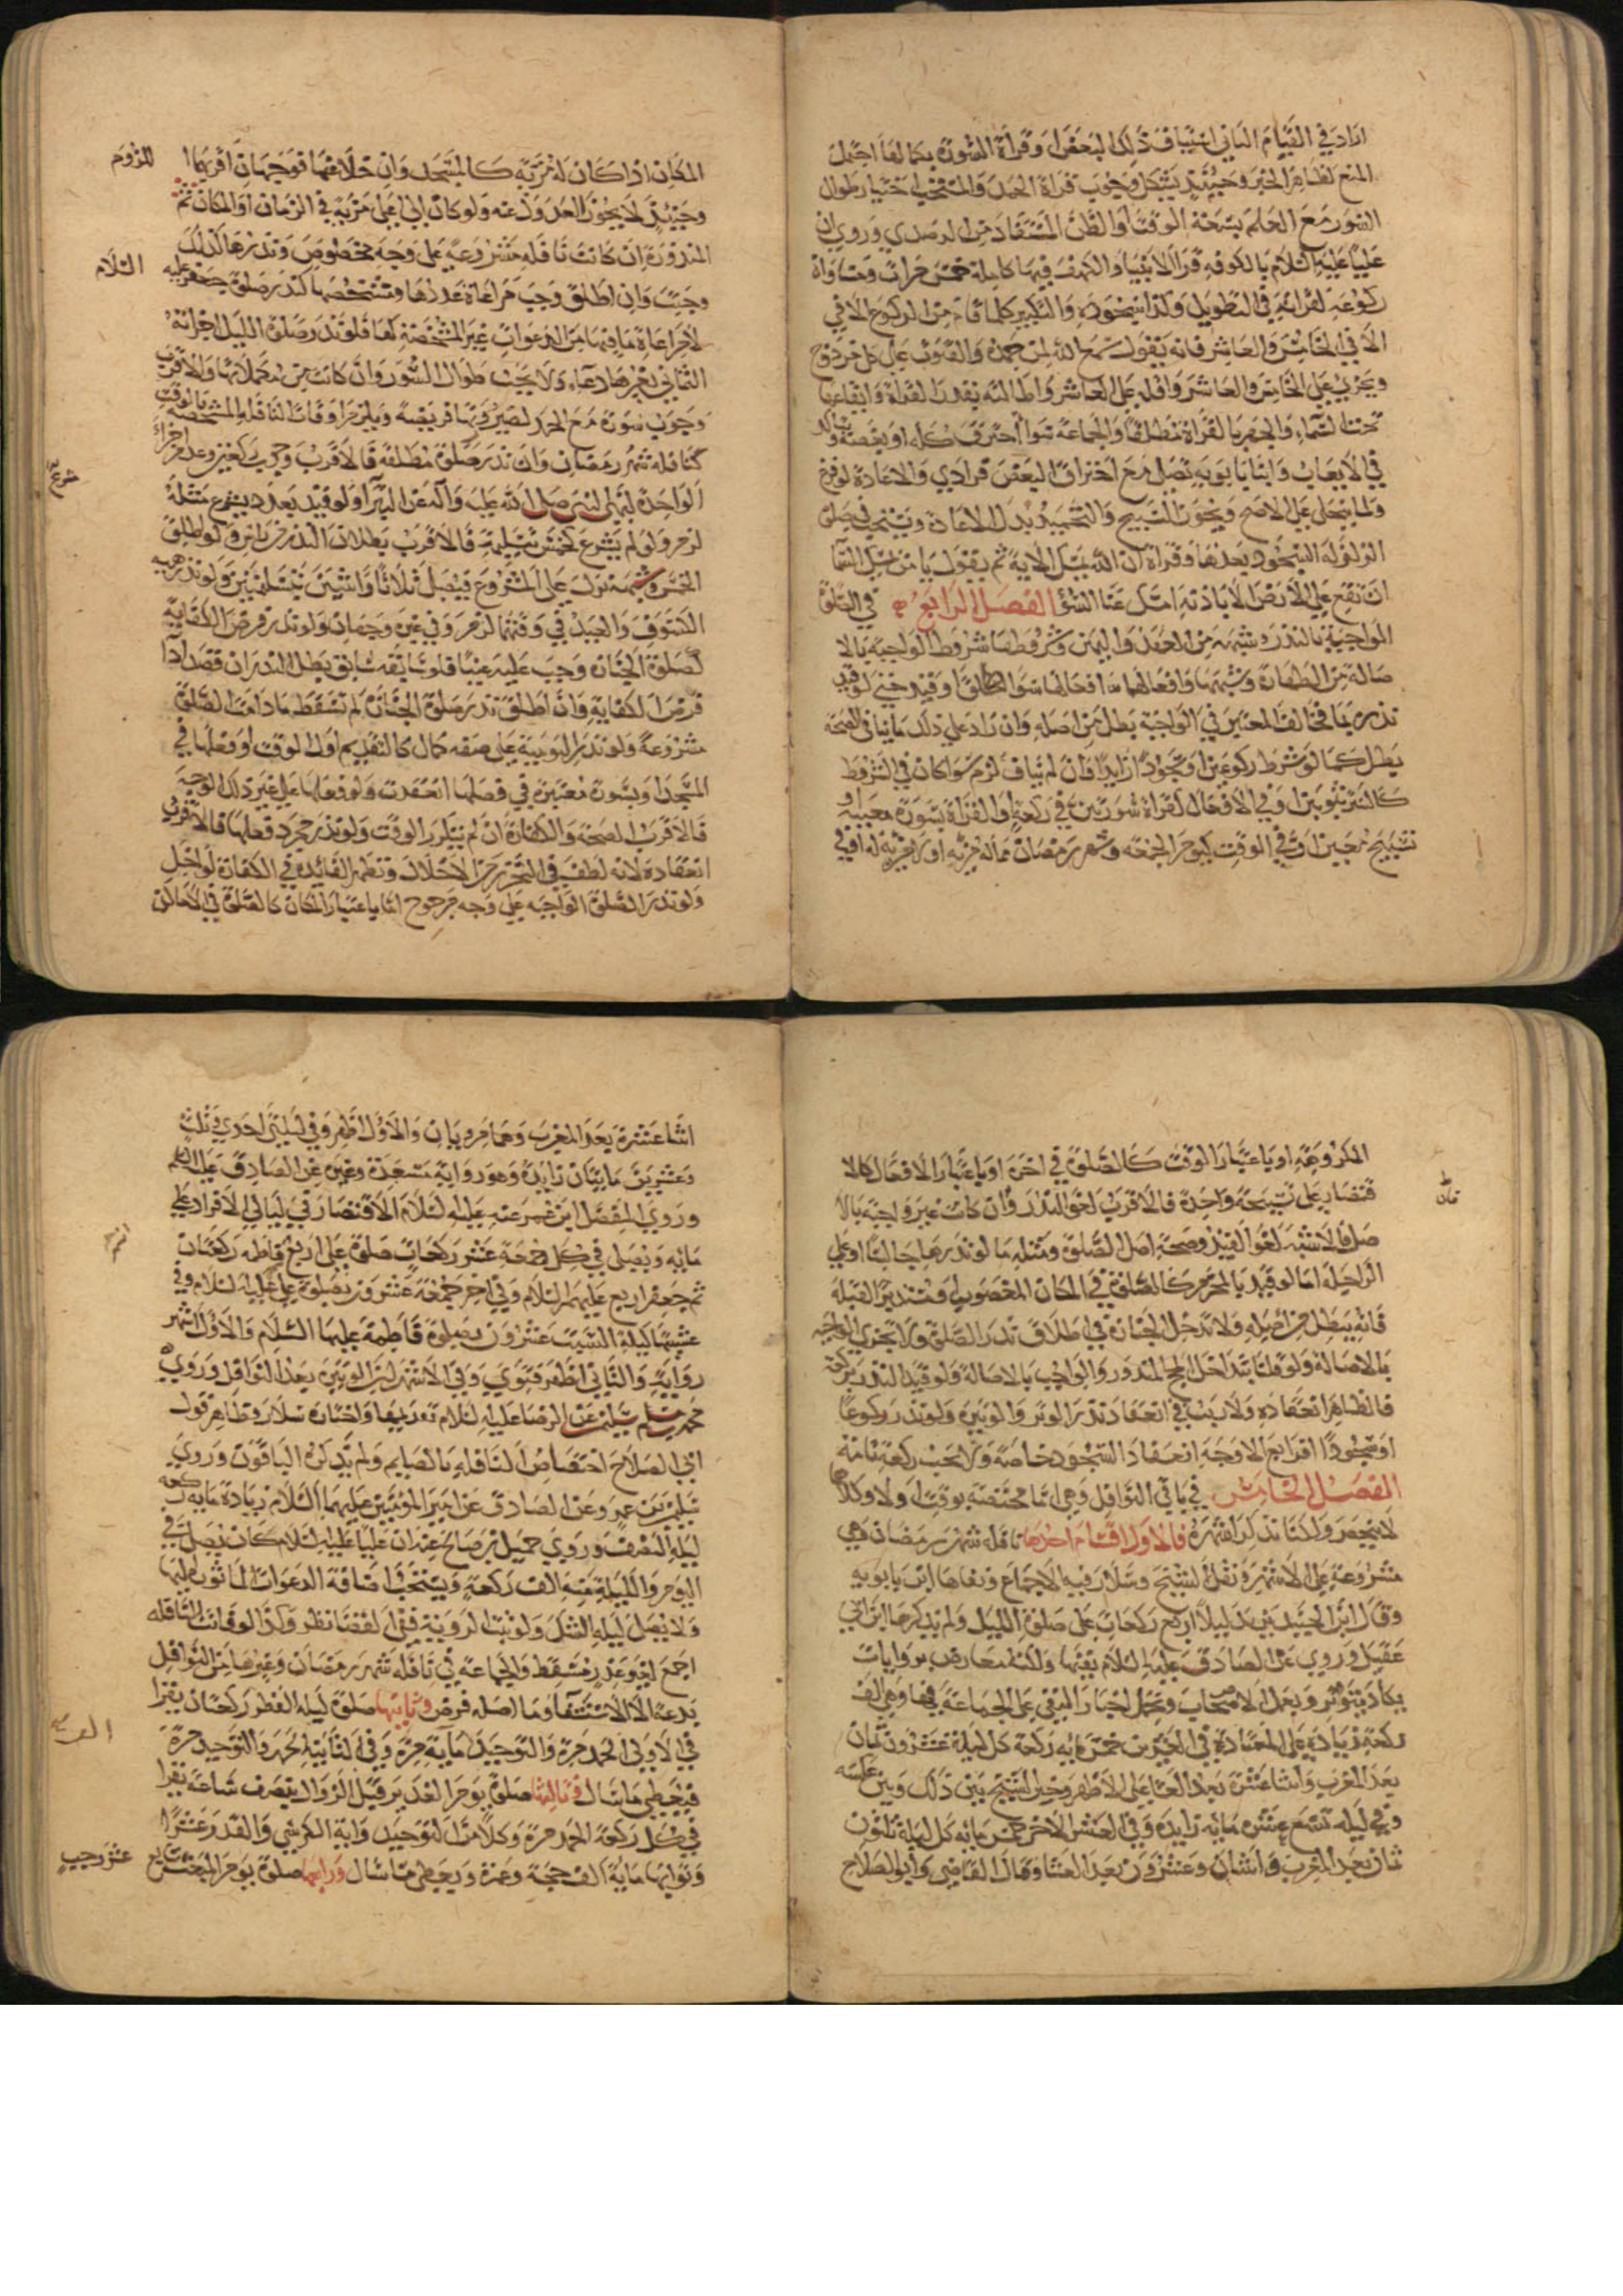 اراد في القيام الثاني استيناف ذلك البعض وقراءة السورة بكمالها احتمل
المنع لظاهر الخبر وحينئذ يشكل وجوب قراءة الحمد والمستحب اختيار طوال
السور مع العلم بسعة الوقت او الظن المستفاد من الرصدي وروي ان
عليا عليه السلام بالكوفة قرأ الانبياء والكهف فيها كاملة خمس مرات ومساواة
ركوعه لقراءته في التطويل وكذا سجوده والتكبير كلما قام من الركوع الا في
الا في الخامس والعاشر فانه يقول سمع الله لمن حمده والقنوت على كل مزدوج
ويجزي على الخامس والعاشر واقله على العاشر واطالته بقدر القراءة وايقاعها
تحت السماء والجهر بالقراءة مطلقا والجماعة سواء احترق كله او بعضه ويتاكد
في الايعاب وابنا بابويه تصلى مع احتراق البعض فرادى والاعادة لو فرغ
ولما ينجلي على الاصح ويجوز التسبيح والتحميد بدل الاعادة ويستحب في صلوة
الزلزلة السجود بعدها وقراءة ان الله يمسك الاية ثم يقول يا من يمسك السماء
ان تقع على الارض الا باذنه امسك عنا السوء الفصل الرابع في الصلوة
الواجبة بالنذر وشبهه من العهد واليمين وشروطها شروط الواجبة بالا
صالة من الطهارة وشبهها وافعالها افعالها سواء اطلق او قيد وحينئذ لو قيد
نذره بما يخالف المعتبر في الواجبة بطل من اصله وان زاد على ذلك ما ينافي الصحة
بطل كما لو شرط ركوعين او سجودا زايدا وان لم يناف لزم سواء كان في الشروط
كالستر بثوبين او في الافعال كقراءة سورتين في ركعة او القراءة بسورة معينة او
تسبيح معين او في الوقت كيوم الجمعة وشهر رمضان مما له مزية او لا مزية له او في
المكان اذا كان له مزية كالمسجد وان خلا عنها فوجهان اقربهما اللزوم
وحينئذ لا يجوز العدول عنه ولو كان الى اعلى مزية في الزمان او المكان ثم
المنذورة ان كانت نافلة مشروعة على وجه مخصوص ونذرها كذلك
وجبت وان اطلق وجب مراعاة عددها ومشخصها كنذر صلوة جعفر عليه السلام
لا مراعاة ما فيها من الدعوات غير المشخصة لها فلو نذر صلوة الليل اجزاته
الثماني بغير دعاء ولا يجب طوال السور وان كانت من مكملاتها والاقرب
وجوب سورة مع الحمد لصيرورتها فريضة ويلتزم اوقات النافلة المشخصة بالوقت
كنافلة شهر رمضان وان نذر صلوة مطلقة فالاقرب وجوب ركعتين وعدم اجزاء
الواحدة لنهي النبي صلى الله عليه وآله عن البتراء ولو قيد بعدد يشرع مثله شرعا
لزم ولو لم يشرع كخمس بتسليمة فالاقرب بطلان النذر من راس ولو اطلق
الخمس وشبهه نزل على المشروع فيصلي ثلاثا واثنتين بتسليمتين ولو نذر هيئة
الكسوف والعيد في وقتهما لزم وفي غيره وجهان ولو نذر فرض الكفاية
كصلوة الجنازة وجب عليه عينا فلو سابق بطل النذر ان قصد اداء
فرض الكفاية وان اطلق نذر صلوة الجنازة لم تسقط ما دامت الصلوة
مشروعة ولو نذر اليومية على صفة كمال كالتقديم اول الوقت او فعلها في
المسجد او بسورة معينة في فصلها انعقدت ولو فعلها على غير ذلك الوجه
فالاقرب الصحة والكفارة ان لم يتكرر الوقت ولو نذر مجرد فعلها فالاقرب
انعقاده لانه لطف في التحرز من الاخلال وتظهر الفايدة في الكفارة لو اخل
ولو نذر الصلوة الواجبة على وجه مرجوح اما باعتبار المكان كالصلوة في الاماكن
المكروهة او باعتبار الوقت كالصلوة في اخره او باعتبار الافعال كالا
قتصار على تسبيحة واحدة فالاقرب لغو النذر وان كانت غير واجبة بالا
صل فالاشبه لغو القيد وصحة اصل الصلوة ومثله ما لو نذرها جالسا او على
الراحلة اما لو قيد بالمحرم كالصلوة في المكان المغصوب او مستدبر القبلة
فانه يبطل من اصله ولا تدخل الجنازة في اطلاق نذر الصلوة ولا تجزي الواجبة
بالاصالة ولو قلنا بتداخل الحج المنذور والواجب بالاصالة ولو قيد النذر بركعة
فالظاهر انعقاده ولا ريب في انعقاد نذر الوتر والوتيرة ولو نذر ركوعا
او سجودا اقرابع الاوجه انعقاد السجود خاصة ولا تجب ركعة تامة
الفصل الخامس في باقي النوافل وهي اما مختصة بوقت او لا وكلاهما
لا ينحصر ولكنا نذكر اشهره فالاول اقسام احدها نافلة شهر رمضان وهي
مشروعة على الاشهر ونقل الشيخ وسلار فيه الاجماع ونفاها ابن بابويه
وقال ابن الجنيد يزيد ليلا اربع ركعات على صلوة الليل ولم يذكرها ابن ابي
عقيل وروي عن الصادق عليه السلام نفيها ولكنه معارض بروايات
يكاد يتواتر وبعمل الاصحاب وتحمل اخبار النفي على الجماعة فيها وهي الف
ركعة زيادة على المعتادة في العشرين خمس مائة ركعة كل ليلة عشرون ثمان
بعد المغرب واثنا عشرة بعد العشاء على الاظهر وخير الشيخ بين ذلك وبين عكسه
وفي ليلة تسع عشرة مائة زايدة وفي العشر الاخر خمس مائة كل ليلة ثلثون
ثمان بعد المغرب واثنتان وعشرون بعد العشاء وقال القاضي وابو الصلاح
اثنا عشرة بعد المغرب وهما مرويان والاول اظهر وفي ليلتي احدى وثلث
وعشرين مايتان زايدة وهو رواية مسعدة وغيره عن الصادق عليه السلام
وروى المفضل ابن عمر عنه عليه السلام الاقتصار في ليالي الافراد على
مائة ويصلي في كل جمعة عشر ركعات صلوة علي اربع فاطمة ركعتان
ثم جعفر اربع عليهم السلام وفي اخر جمعة عشرون بصلوة علي عليه السلام وفي
عشيتها ليلة السبت عشرون بصلوة فاطمة عليها السلام والاول اشهر
رواية والثاني اظهر فتوى وفي الاشهر ان الوتيرة بعد النوافل وروى
محمد بن سليمن عن الرضا عليه السلام تقديمها واختاره سلار وظاهر قول
ابي الصلاح اختصاص النافلة بالصايم ولم يذكره الباقون وروى
سليمن بن عمرو عن الصادق عن امير المؤمنين عليهما السلام زيادة مائة ركعة
ليلة النصف وروى جميل بن صالح عنه ان عليا عليه السلام كان يصلي في
اليوم والليلة الف ركعة ويستحب اضافة الدعوات الماثورة اليها
ولا يصلى ليلة الشك ولو ثبت الروية ففي القضا نظر وكذا لو فاتت النافلة
اجمع لغير عذر سقط والجماعة في نافلة شهر رمضان وغيرها من النوافل
بدعة الا الاستسقا وما اصله فرض وثانيها صلوة ليلة الفطر ركعتان يقرا
في الاولى الحمد مرة والتوحيد الف مرة وفي الثانية الحمد والتوحيد مرة
فيعطى ما سال وثالثها صلوة يوم الغدير قبل الزوال بنصف ساعة يقرا
في كل ركعة الحمد مرة وكلا من التوحيد واية الكرسي والقدر عشرا
وثوابها ماية الف حجة وعمرة ويعطى ما سال ورابعها صلوة يوم المبعث سابع عشر رجب